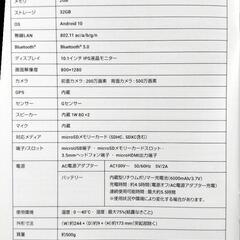 メモリ 2GB
ストレージ 32GB
OS Android 10
無線LAN 802.11 ac/a/b/g/n
Bluetooth® Bluetooth® 5.0
ディスプレイ 10.1インチ IPS液晶モニター
画面解像度 800×1280
カメラ 前面カメラ:200万画素 背面カメラ:500万画素
GPS 内蔵
センサー Gセンサー
スピーカー 内蔵 1W 8Ω ×2
マイク 内蔵
対応メディア microSDメモリーカード (SDHC、SDXC含む)
端子/スロット microUSB端子・microSDメモリーカードスロット・
3.5mmヘッドフォン端子・microHDMI出力端子
電源 ACアダプター AC100V~ 50/60Hz 5V/2A
バッテリー 内蔵型リチウムポリマー充電池(6000mAh/3.7V)
充電時間:約4.5時間(電源オフ/ACアダプター充電)
連続使用可能時間:約5.5時間
※使用時間は使用環境や設定等により変化する場合があります。
使用環境 温度:0~40℃ 湿度:最大75%(結露なきこと)
外形寸法 (W)244×(D)9×(H)173 mm(突起部除く)
質量 約500g